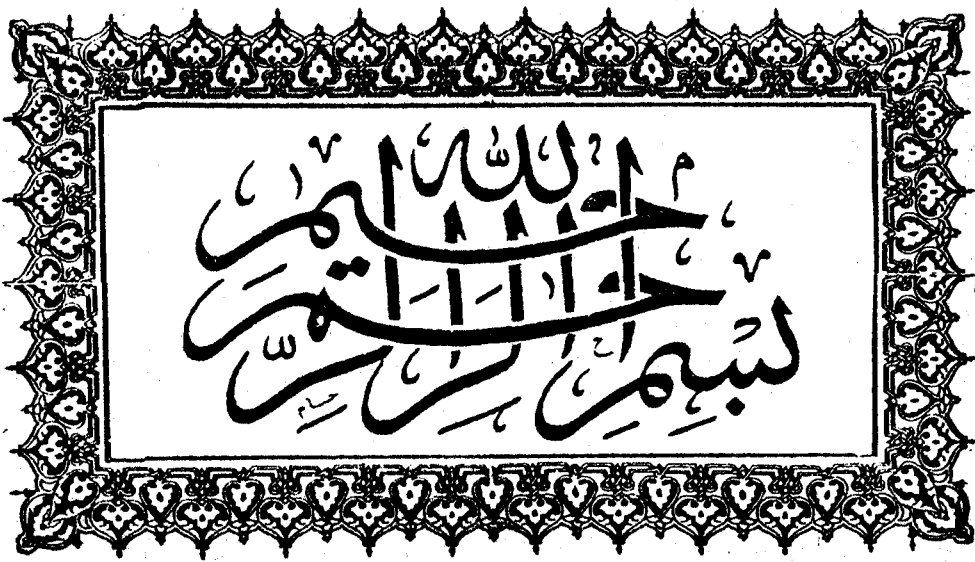 بسم الله الرحمن الرحيم
حسام